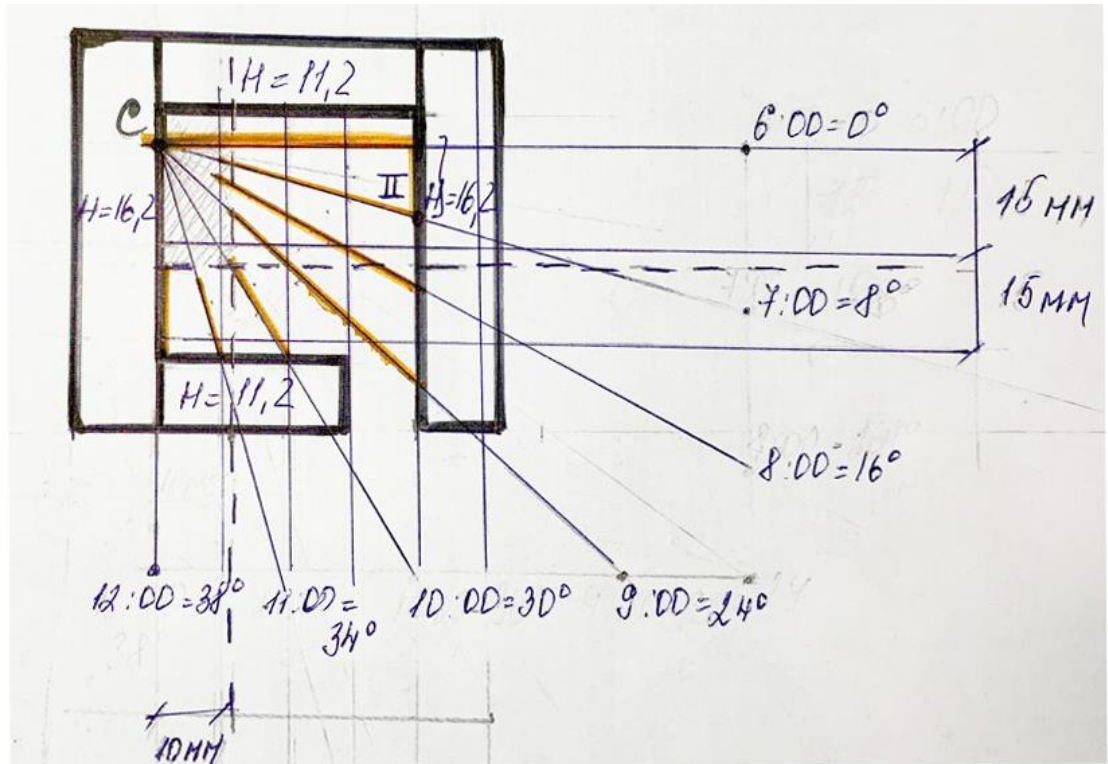 H=11,2
C
6:00=0°
II
H=16,2
H=16,2
15 мм
7:00=8°
15 мм
H=11,2
8:00=16°
12:00=38°
11:00=
34°
10:00=30°
9:00=24°
10 мм